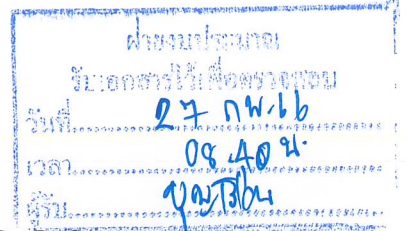 ฝ่ายงบประมาณ
รับเอกสารไว้เพื่อตรวจสอบ
วันที่ 27 กพ. 66
เวลา 08.40 น.
ผู้รับ